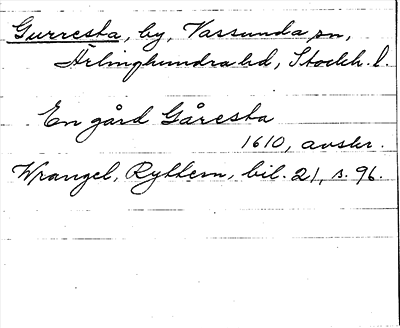 Gurresta, by, Vassunda sn,
Ärlinghundra hd, Stockh. l.
En gård Gåresta
1610, avskr.
Wrangel, Ryttern, bil. 21, s. 96.